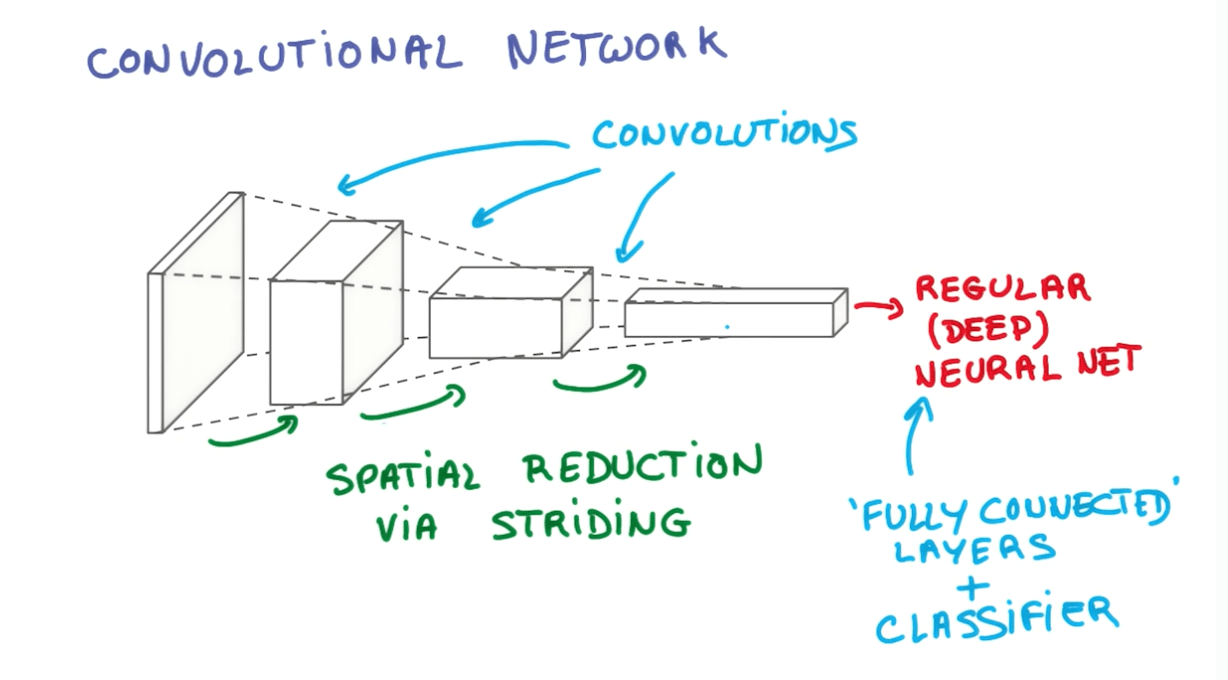 CONVOLUTIONAL NETWORK
CONVOLUTIONS
REGULAR
(DEEP)
NEURAL NET
SPATIAL REDUCTION
VIA STRIDING
'FULLY CONNECTED'
LAYERS
+
CLASSIFIER